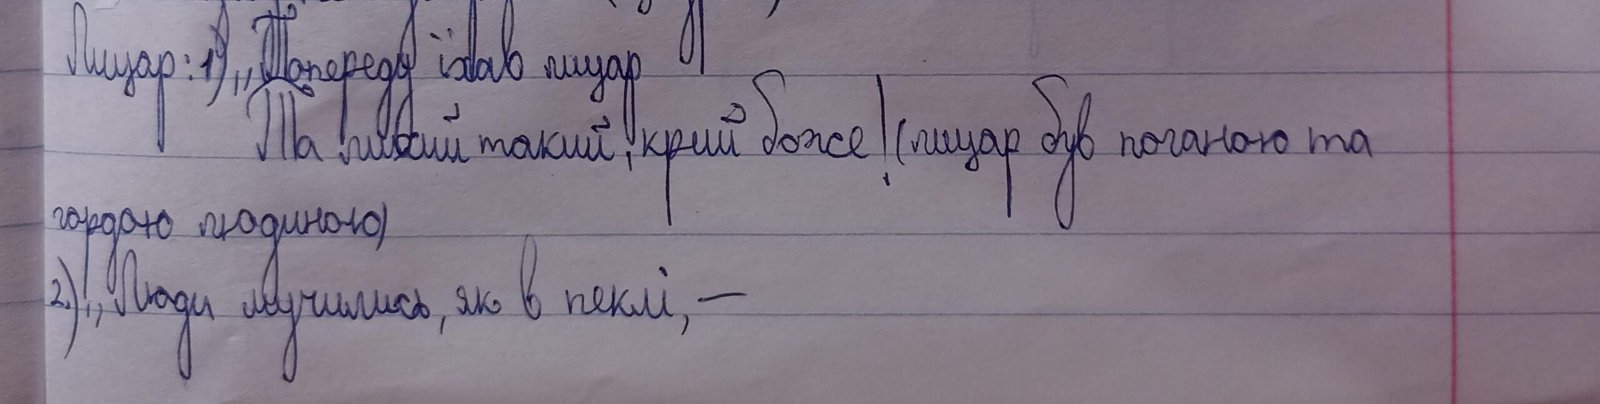 Лицар: 1) „Попереду їхав лицар
Та пихий такий, крий боже! (лицар був поганою та
гордою людиною)
2.) „Люди мучились, як в пеклі, —